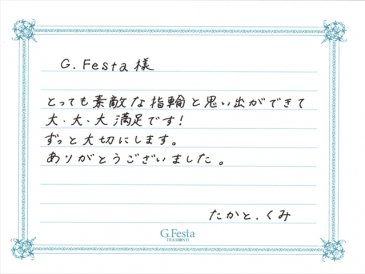 G.Festa様
とっても素敵な指輪と思い出ができて
大、大、大満足です！
ずっと大切にします。
ありがとうございました。
たかと、くみ
G.Festa